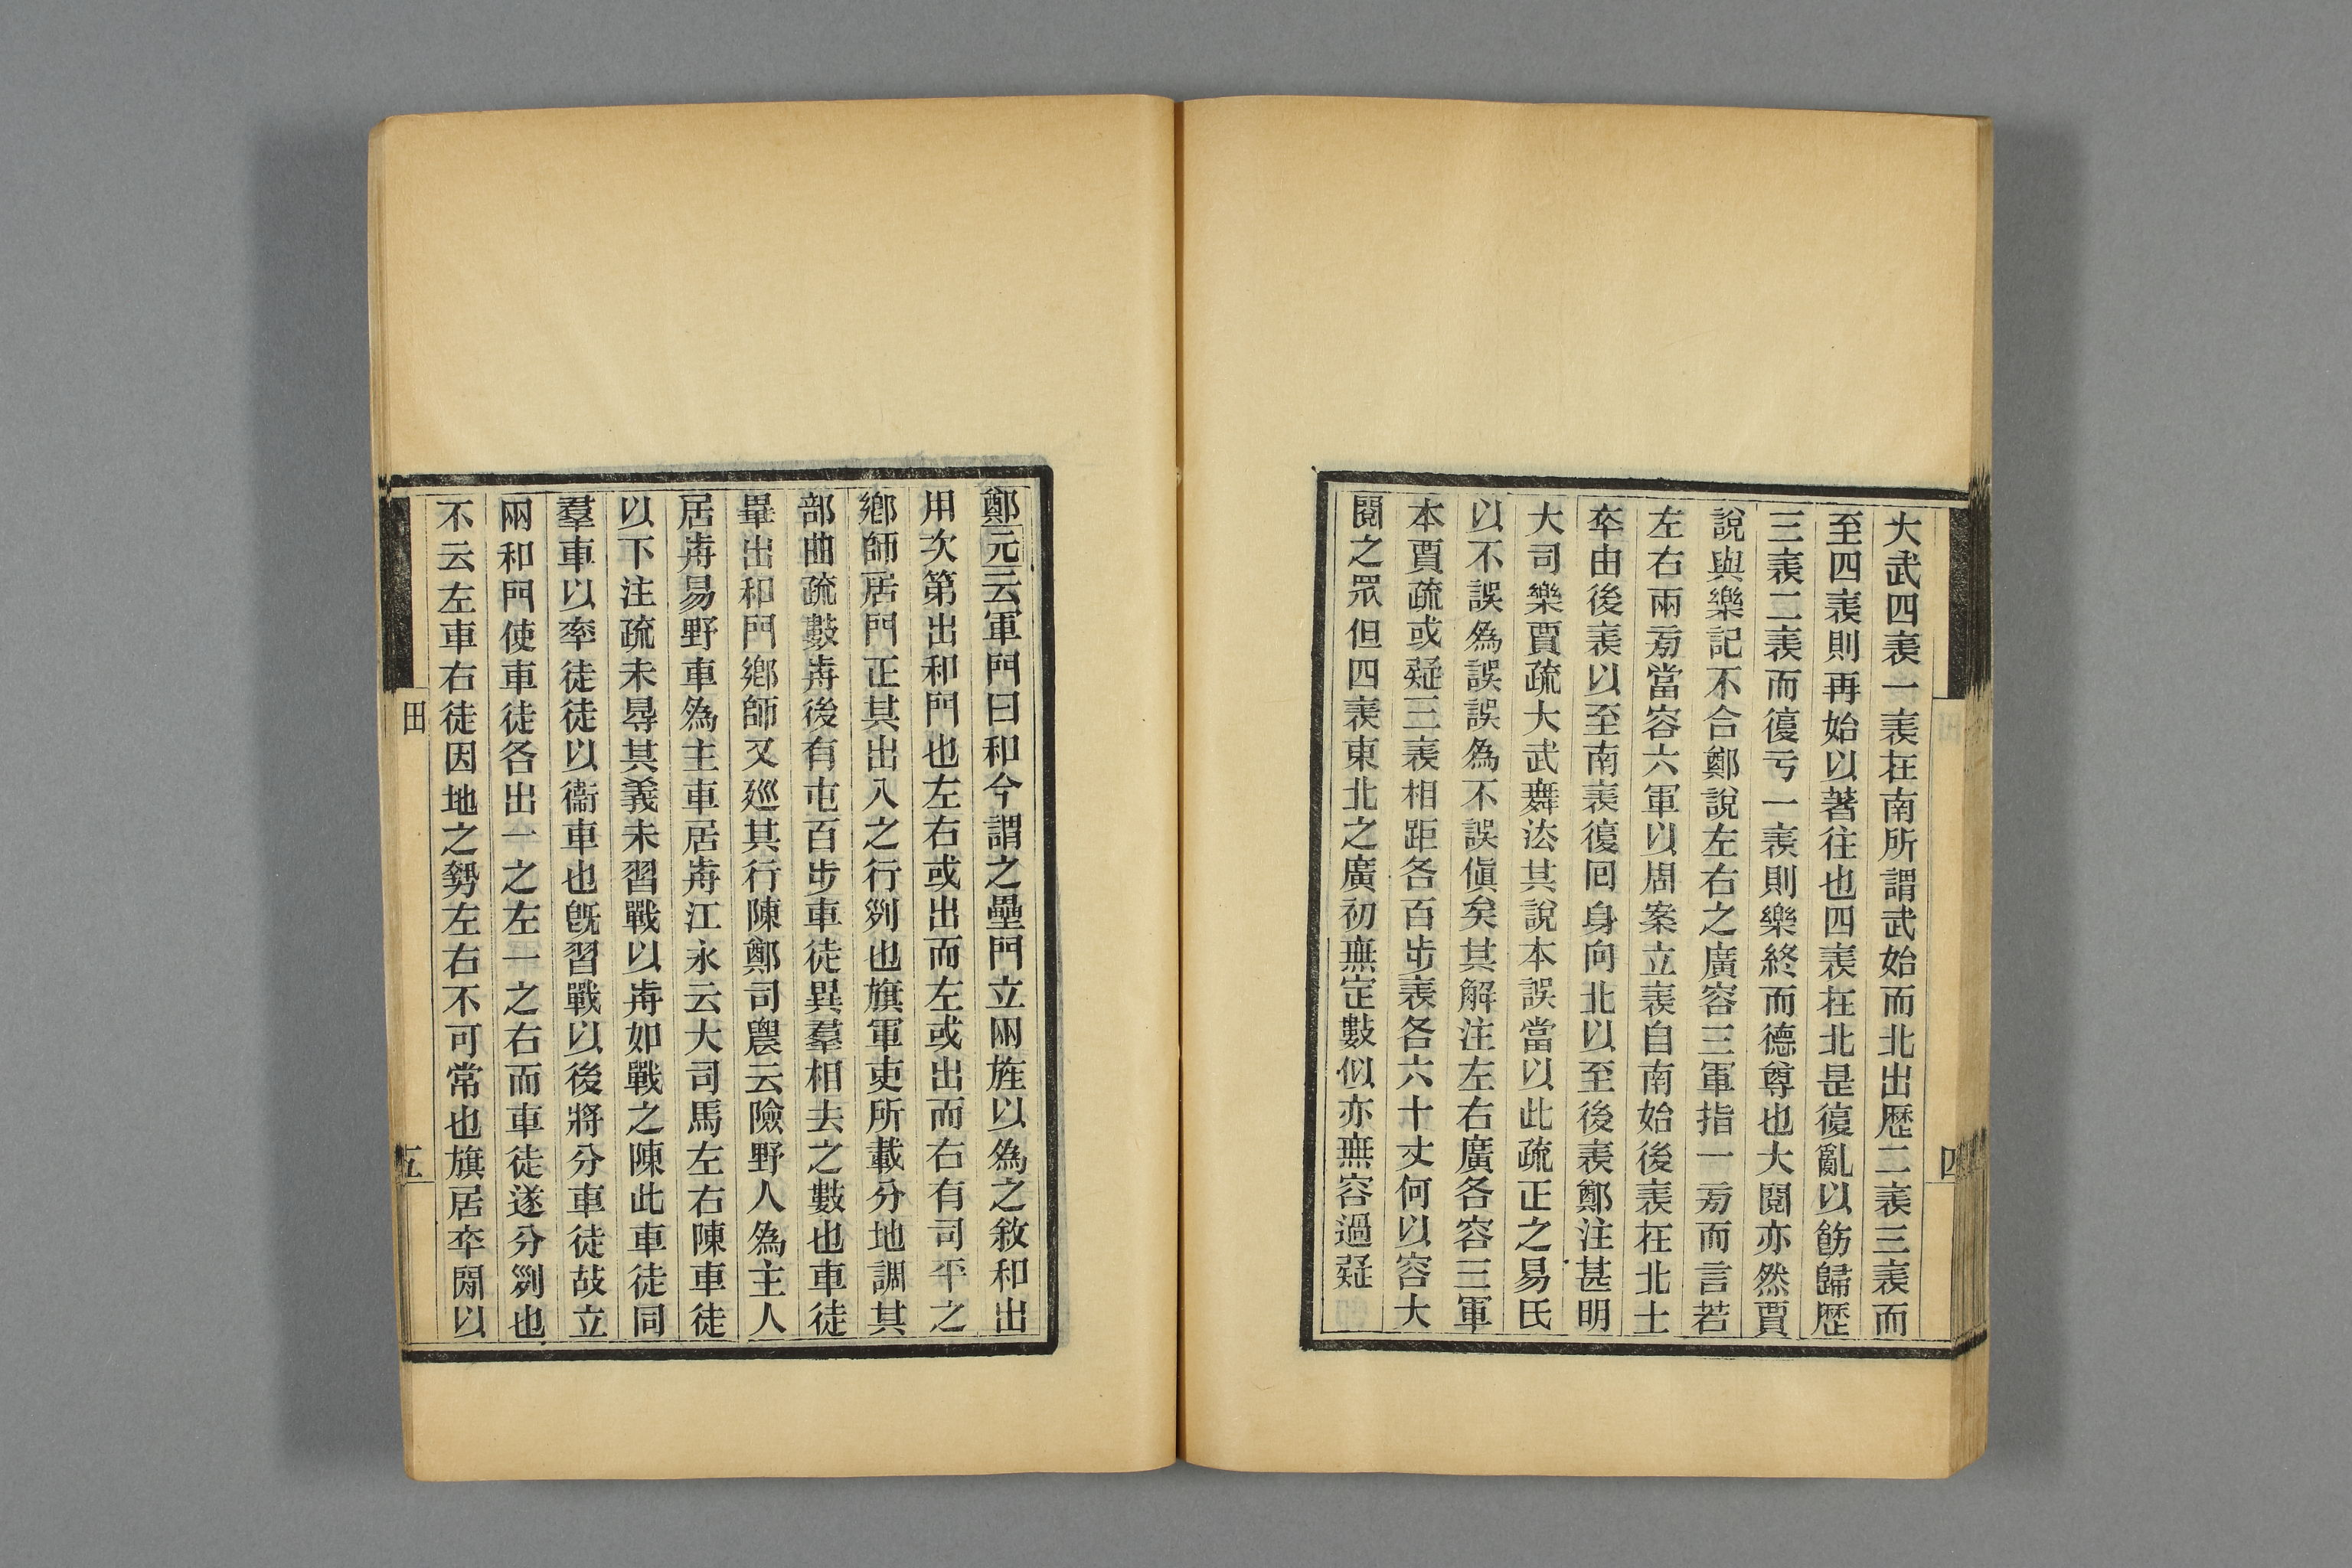 大武四表一表在南所謂武始而北出歷二表三表而
至四表則再始以著往也四表在北是復亂以飭歸歷
三表二表而復亏一表則樂終而德尊也大閱亦然賈
說與樂記不合鄭說左右之廣容三軍指一㫄而言若
左右兩㫄當容六軍以周案立表自南始後表在北士
卒由後表以至南表復回身向北以至後表鄭注甚明
大司樂賈疏大武舞法其說本誤當以此疏正之易氏
以不誤為誤誤為不誤傎矣其解注左右廣各容三軍
本賈疏或疑三表相距各百步表各六十丈何以容大
閱之眾但四表東北之廣初無定數似亦無容過疑
四
鄭元云軍門曰和今謂之壘門立兩旌以為之敘和出
用次第出和門也左右或出而左或出而右有司平之
鄉師居門正其出入之行列也旗軍吏所載分地調其
部曲疏數歬後有屯百步車徒異羣相去之數也車徒
畢出和門鄉師又巡其行陳鄭司農云險野人為主人
居歬易野車為主車居歬江永云大司馬左右陳車徒
以下注疏未尋其義未習戰以歬如戰之陳此車徒同
羣車以率徒徒以衞車也旣習戰以後將分車徒故立
兩和門使車徒各出一之左一之右而車徒遂分列也
不云左車右徒因地之勢左右不可常也旗居卒閒以
田
五